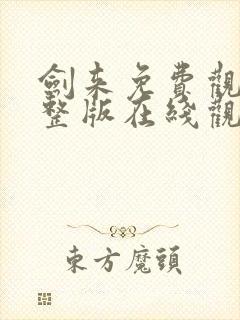 劍来免費觀
整版在綫觀
東方魔頭